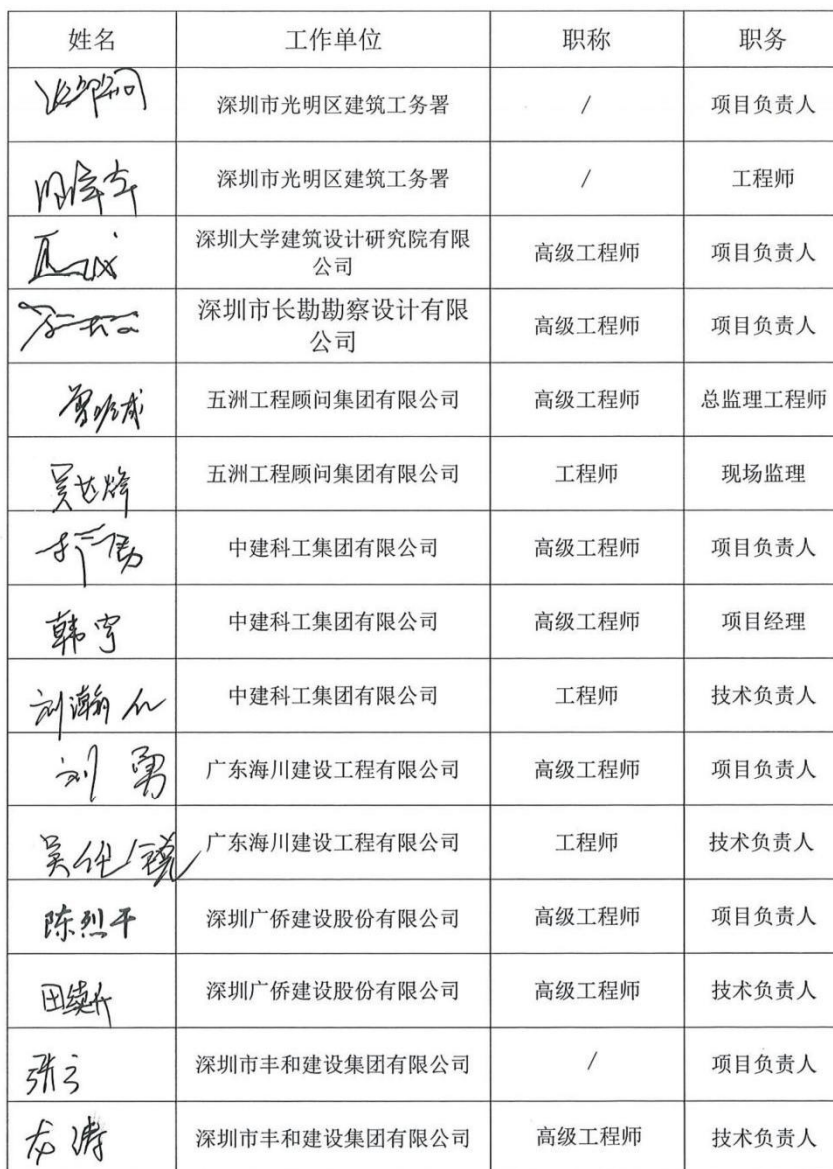 姓名 工作单位 职称 职务
深圳市光明区建筑工务署 / 项目负责人
深圳市光明区建筑工务署 / 工程师
深圳大学建筑设计研究院有限
公司 高级工程师 项目负责人
深圳市长勘勘察设计有限
公司 高级工程师 项目负责人
五洲工程顾问集团有限公司 高级工程师 总监理工程师
五洲工程顾问集团有限公司 工程师 现场监理
中建科工集团有限公司 高级工程师 项目负责人
韩宇 中建科工集团有限公司 高级工程师 项目经理
刘瀚 中建科工集团有限公司 工程师 技术负责人
刘勇 广东海川建设工程有限公司 高级工程师 项目负责人
广东海川建设工程有限公司 工程师 技术负责人
陈烈平 深圳广侨建设股份有限公司 高级工程师 项目负责人
深圳广侨建设股份有限公司 高级工程师 技术负责人
深圳市丰和建设集团有限公司 / 项目负责人
深圳市丰和建设集团有限公司 高级工程师 技术负责人